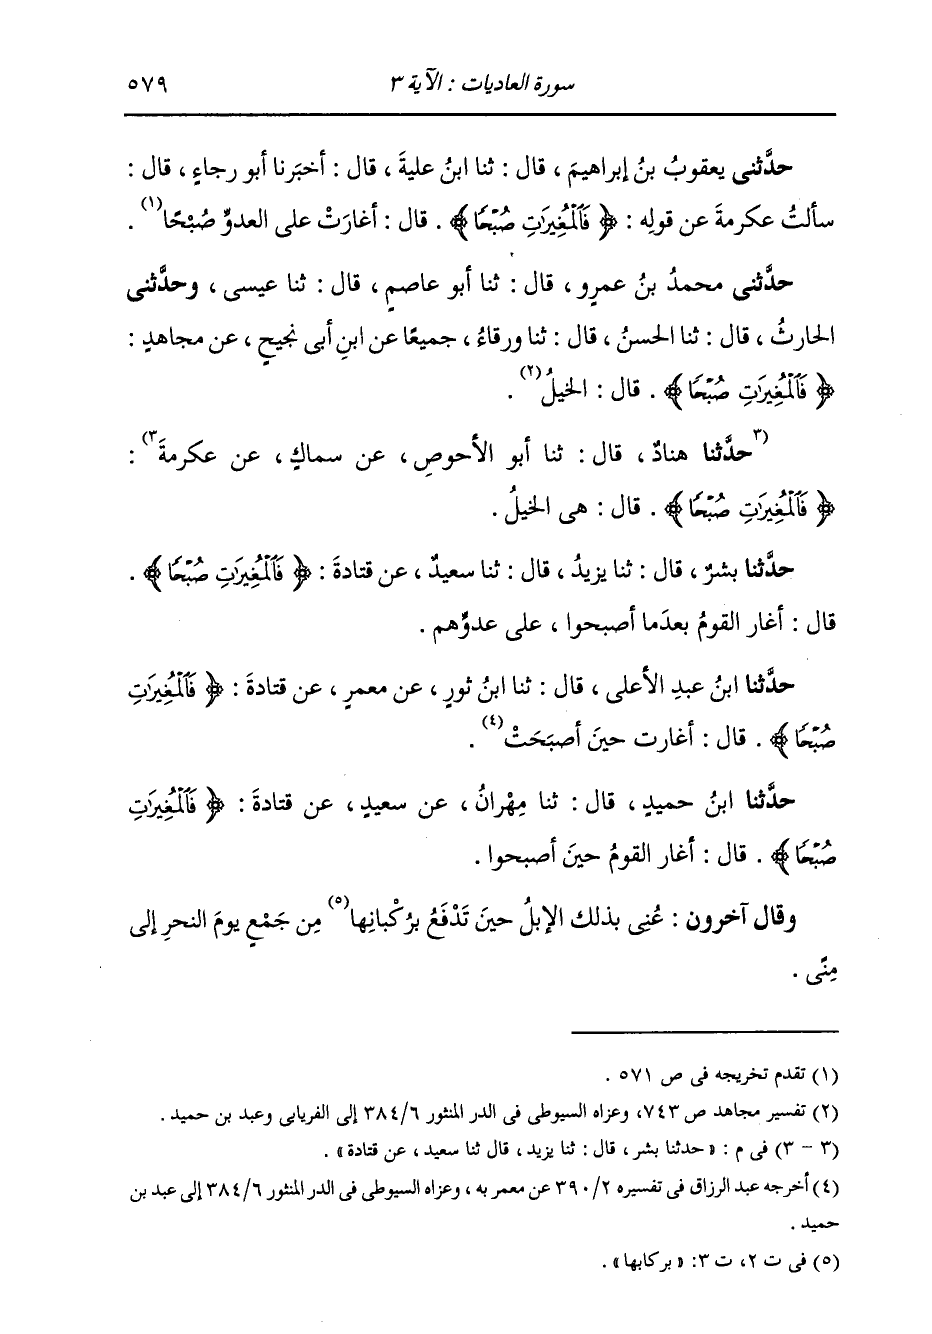 سورة العاديات : الآية ٣ ٥٧٩
حدَّثنى يعقوبُ بنُ إبراهيمَ ، قال : ثنا ابنُ عليةَ ، قال : أخبَرنا أبو رجاءٍ ، قال :
سألتُ عكرمةَ عن قولِه : ﴿ فَٱلْمُغِيرَٰتِ صُبْحًا ﴾ . قال : أغارَتْ على العدوِّ صُبْحًا(١) .
حدَّثنى محمدُ بنُ عمرٍو ، قال : ثنا أبو عاصمٍ ، قال : ثنا عيسى ، وحدَّثنى
الحارثُ ، قال : ثنا الحسنُ ، قال : ثنا ورقاءُ ، جميعًا عن ابنِ أبى نجيحٍ ، عن مجاهدٍ :
﴿ فَٱلْمُغِيرَٰتِ صُبْحًا ﴾ . قال : الخيلُ(٢) .
(٣حدَّثنا هنادٌ ، قال : ثنا أبو الأحوصِ ، عن سماكٍ ، عن عكرمةَ٣) :
﴿ فَٱلْمُغِيرَٰتِ صُبْحًا ﴾ . قال : هى الخيلُ .
حدَّثنا بشرٌ ، قال : ثنا يزيدُ ، قال : ثنا سعيدٌ ، عن قتادةَ : ﴿ فَٱلْمُغِيرَٰتِ صُبْحًا ﴾ .
قال : أغار القومُ بعدَما أصبحوا ، على عدوِّهم .
حدَّثنا ابنُ عبدِ الأعلى ، قال : ثنا ابنُ ثورٍ ، عن معمرٍ ، عن قتادةَ : ﴿ فَٱلْمُغِيرَٰتِ
صُبْحًا ﴾ . قال : أغارت حينَ أصبَحَتْ(٤) .
حدَّثنا ابنُ حميدٍ ، قال : ثنا مِهْرانُ ، عن سعيدٍ ، عن قتادةَ : ﴿ فَٱلْمُغِيرَٰتِ
صُبْحًا ﴾ . قال : أغار القومُ حينَ أصبحوا .
وقال آخرون : عُنِى بذلك الإبلُ حينَ تَدْفَعُ برُكْبانِها(٥) مِن جَمْعٍ يومَ النحرِ إلى
مِنًى .
(١) تقدم تخريجه فى ص ٥٧١ .
(٢) تفسير مجاهد ص ٧٤٣، وعزاه السيوطى فى الدر المنثور ٣٨٤/٦ إلى الفريابى وعبد بن حميد .
(٣ - ٣) فى م : « حدثنا بشر ، قال : ثنا يزيد ، قال ثنا سعيد ، عن قتادة » .
(٤) أخرجه عبد الرزاق فى تفسيره ٣٩٠/٢ عن معمر به ، وعزاه السيوطى فى الدر المنثور ٣٨٤/٦ إلى عبد بن
حميد .
(٥) فى ت ٢، ت ٣: « بركابها » .